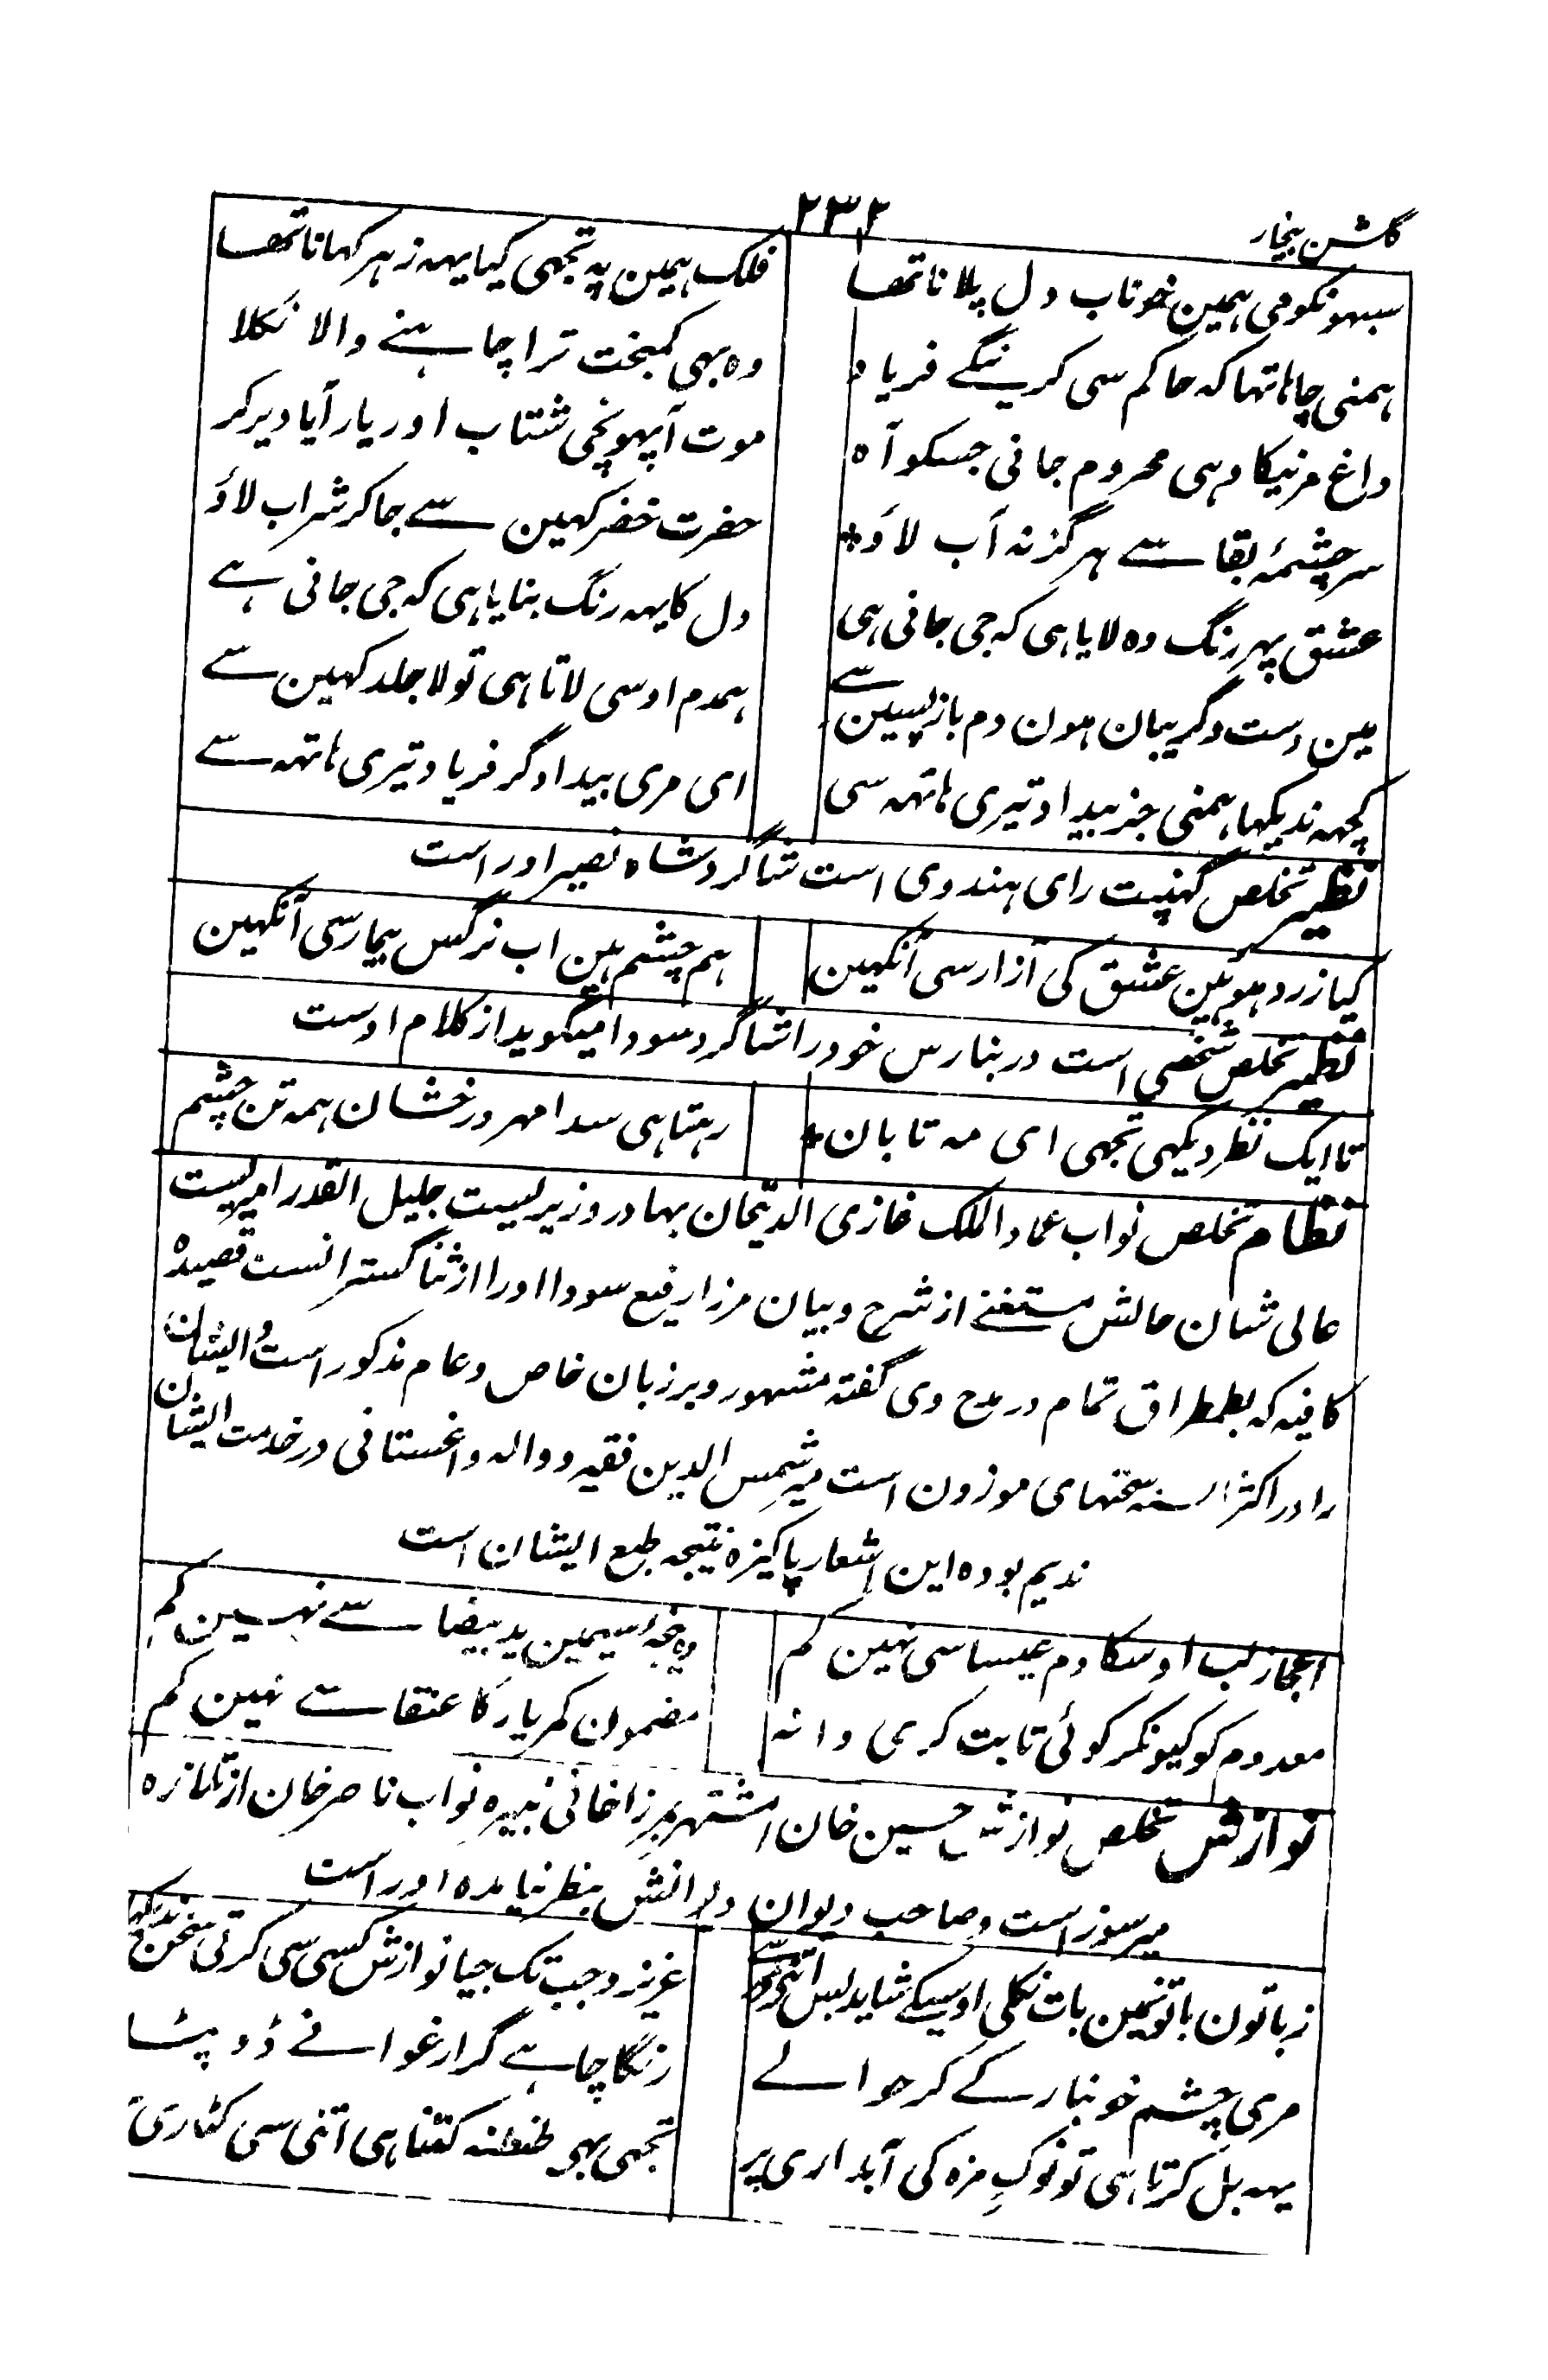 گلشن بیخار
۲۳۲
سبہونکو می ہمین خوناب دل پلانا تھا
فلک ہمین پہ تجھی کیا یہہ زہر کہانا تھا
ہمنی چاہا تہا کہ حاکم سی کرینگے فریاد
وہ بہی کمبخت ترا چاہنے والا نکلا
داغ مرنیکا وہی محروم جانی جسکو آہ
موت آپہونچی شتاب اور یار آیا دیر کر
سرچشمۂ بقا سے ہرگز نہ آب لاؤ*
حضرت خضر کہین سے جا کر شراب لاؤ
عشق پہر رنگ وہ لایا ہی کہ جی جانی ہی
دل کا یہہ رنگ بنایا ہی کہ جی جانی ہے
مین دست و گریبان ہون دم بازپسین سے
ہمدم اوسی لاتا ہی تو لا جلد کہین سے
کچہہ ندیکہا ہمنی جز بیداد تیری ہاتہہ سی
ای مری بیداد گر فریاد تیری ہاتہہ سے
نظیر تخلص گہنپت رای ہندوی است شاگرد شاہ نصیر اور است
کیا زرد ہوئین عشق کی آزار سی آنکہین
ہم چشم ہین اب نرگس بیمار سی آنکہین
نظیر تخلص شخصی است در بنارس خود را شاگرد سودا میگوید از کلام اوست
تا ایک نظر دیکہی تجھی ای مہ تابان*
رہتا ہی سدا مہر درخشان ہمہ تن چشم
نظام تخلص نواب عماد الملک غازی الدینخان بہادر وزیریست جلیل القدر امیریست
عالی شان حالش مستغنے از شرح و بیان مرزا رفیع سودا اورا از ثنا گسترانست قصیدہ
کافیہ کہ بطمطراق تمام در مدح وی گفتہ مشہور و بر زبان خاص و عام مذکور است و ایشان
را در اکثر السنہ سخنہای موزون است میر شمس الدین فقیر و والہ داغستانی در خدمت ایشان
ندیم بودہ این اشعار پاکیزہ نتیجہ طبع ایشان است
اعجاز لب اوسکا دم عیسا سی نہین کم
وہ پنجۂ سیمین ید بیضا سے نہین کم
معدوم کو کیونکر کوئی ثابت کری دانہ
مضمون کمر یار کا عنقا سے نہین کم
نوازش تخلص نوازش حسین خان المشتہر بمرزا خانی نبیرہ نواب ناصر خان از تلامذہ
میر سوز است و صاحب دیوان دیوانش بنظر نیامدہ اور است
زباتون باتونمین بات نکلی اوسیکے شاید لبس
عزیزو جب تک جیا نوازش کسی سی کرتی سخن ندیکہا
مری چشم خونبار کے کر حوالے
رنگا چاہے گر ارغوانے دُوپٹا
یہہ بل کرتا ہی تو نوکِ مژہ کی آبداری پر
تجھی بہی طنطنہ کتنا ہی اتنی سی کٹاری